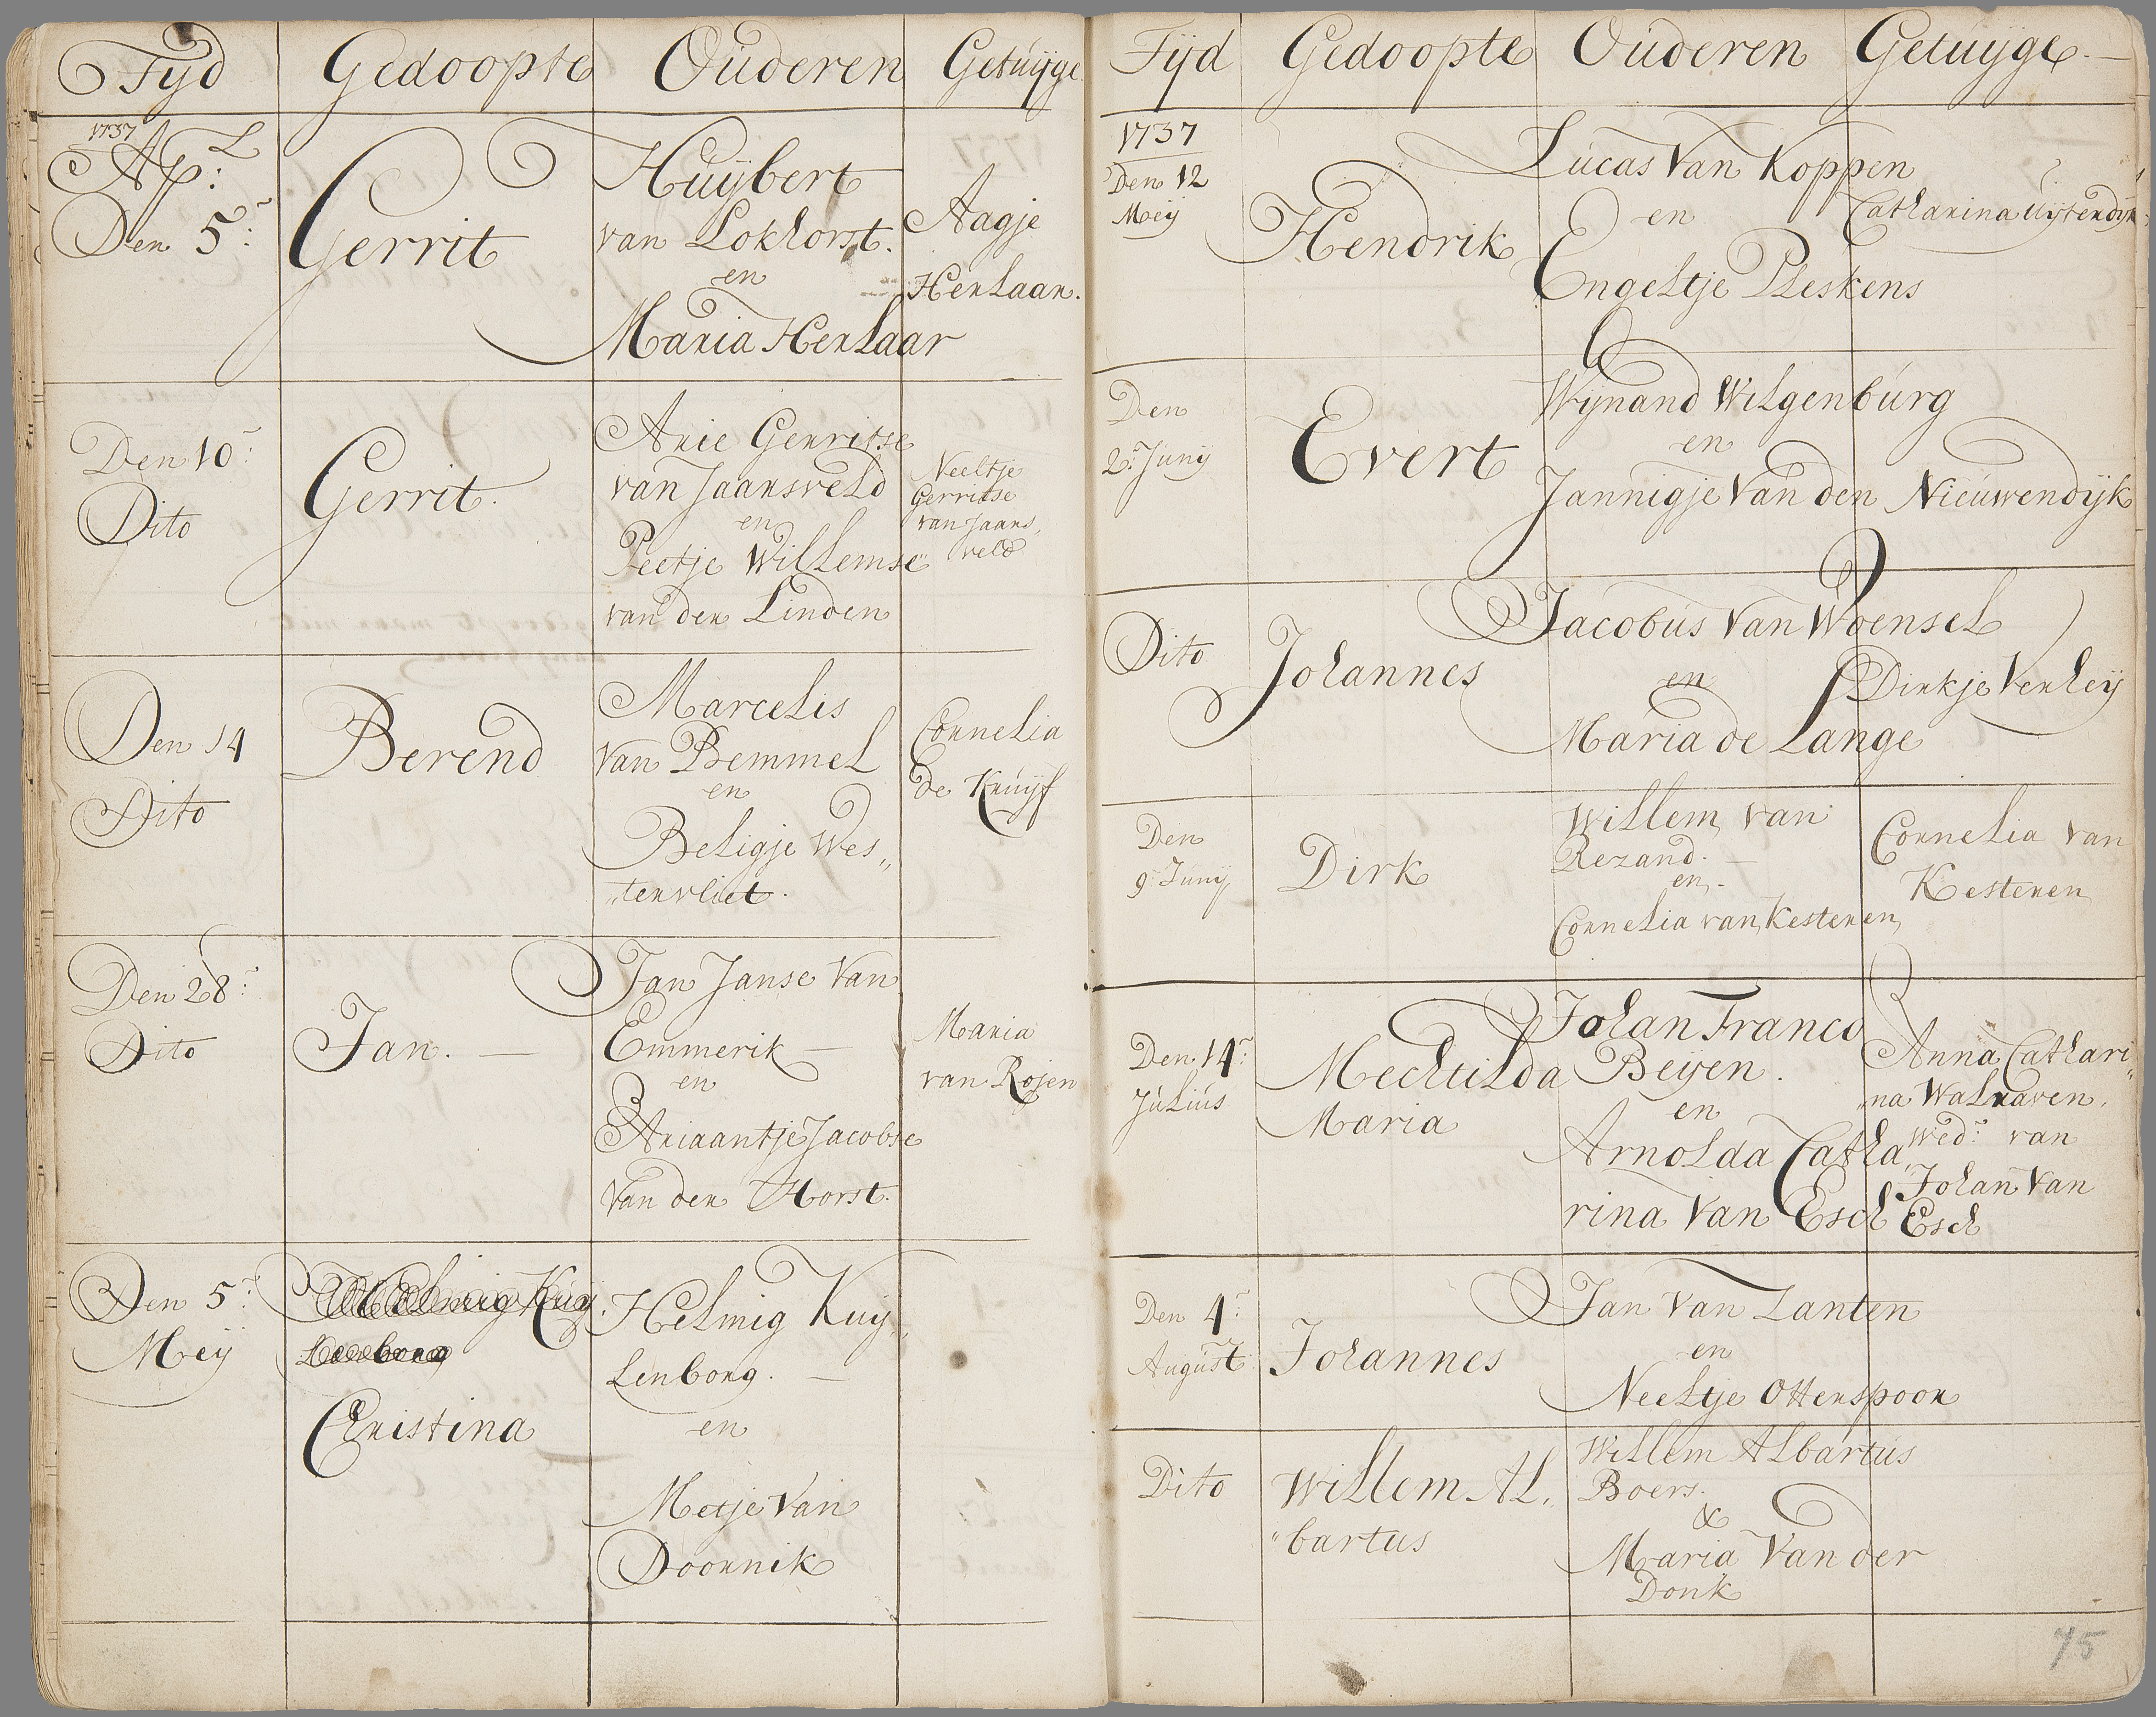 Tyd Gedoopte Ouderen Getuijge
1737
Ap: L
Den 5:
Gerrit
Huijbert
van Lokhorst.
en
Maria Herlaar
Aagje
Herlaar.
Den 10:
Dito
Gerrit.
Arie Gerritse
van Jaarsveld
en
Peetje Willemse
van der Linden
Neeltje
Gerritse
van Jaars,
veld
Den 14
Dito
Berend
Marcelis
van Bemmel
en
Beligje Wes„
„tervliet.
Cornelia
de Kruijf
Den 28:
Dito
Jan.
Jan Janse Van
Emmerik
en
Ariaantje Jacobse
Van der Horst.
Maria
van Rojen
Den 5:
Meij
Christina
Helmig Kuij„
Lenborg.
en
Metje Van
Doornik
Tijd Gedoopte Ouderen Getuijge.
1737
Den 12
Meij
Hendrik
Lucas Van Koppen
en
Engeltje Pleskens
Catharina Uijtendijk
Den
2: Junij
Evert
Wijnand Wilgenburg
en
Jannigje Van den Nieuwendijk
Dito
Johannes
Jacobus Van Woensel
en
Maria de Lange
Dirkje Verleij
Den
9: Junij
Dirk
Willem van
Rezand.
en.
Cornelia van Kesteren
Cornelia van
Kesteren
Den 14:
Julius
Mechtilda
Maria
Johan Franco
Beijen.
en
Arnolda Catha„
rina Van Esch
Anna Cathari„
„na Walraven,
Wed: van
Johan Van
Esch
Den 4:
August
Johannes
Jan Van Zanten
en
Neeltje Otterspoor
Dito
Willem Al„
„bartus
Willem Albartus
Boers.
&
Maria Van der
Donk
75